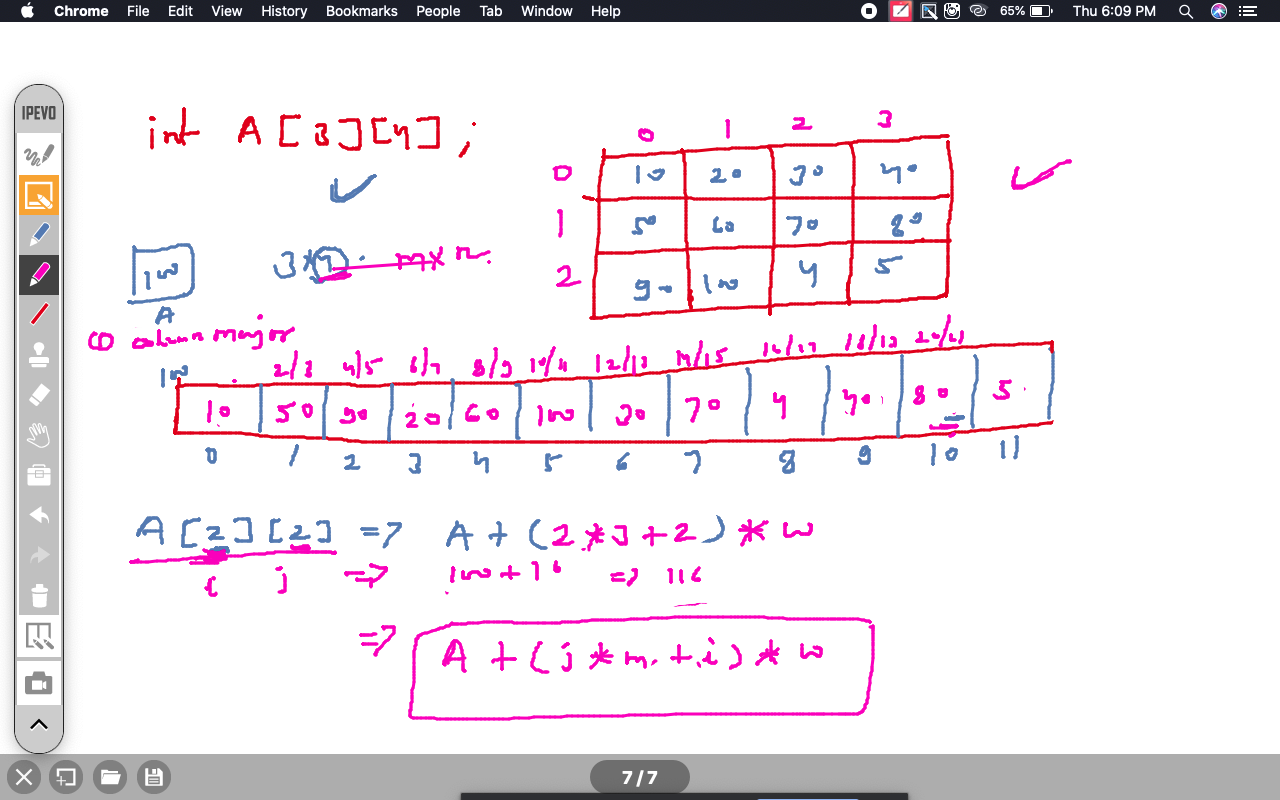 Chrome File Edit View History Bookmarks People Tab Window Help 65% Thu 6:09 PM
IPEVO
int A[3][4];
0 1 2 3
0 10 20 30 40
1 50 60 70 80
2 90 100 4 5
100
A
3*4 m×n
① column major
100 2/3 4/5 6/7 8/9 10/11 12/13 14/15 16/17 18/19 20/21
10 50 90 20 60 100 30 70 4 40 80 5
0 1 2 3 4 5 6 7 8 9 10 11
A[2][2] => A+(2*3+2)*w
i j => 100+16 => 116
=> A+(j*m+i)*w
7/7